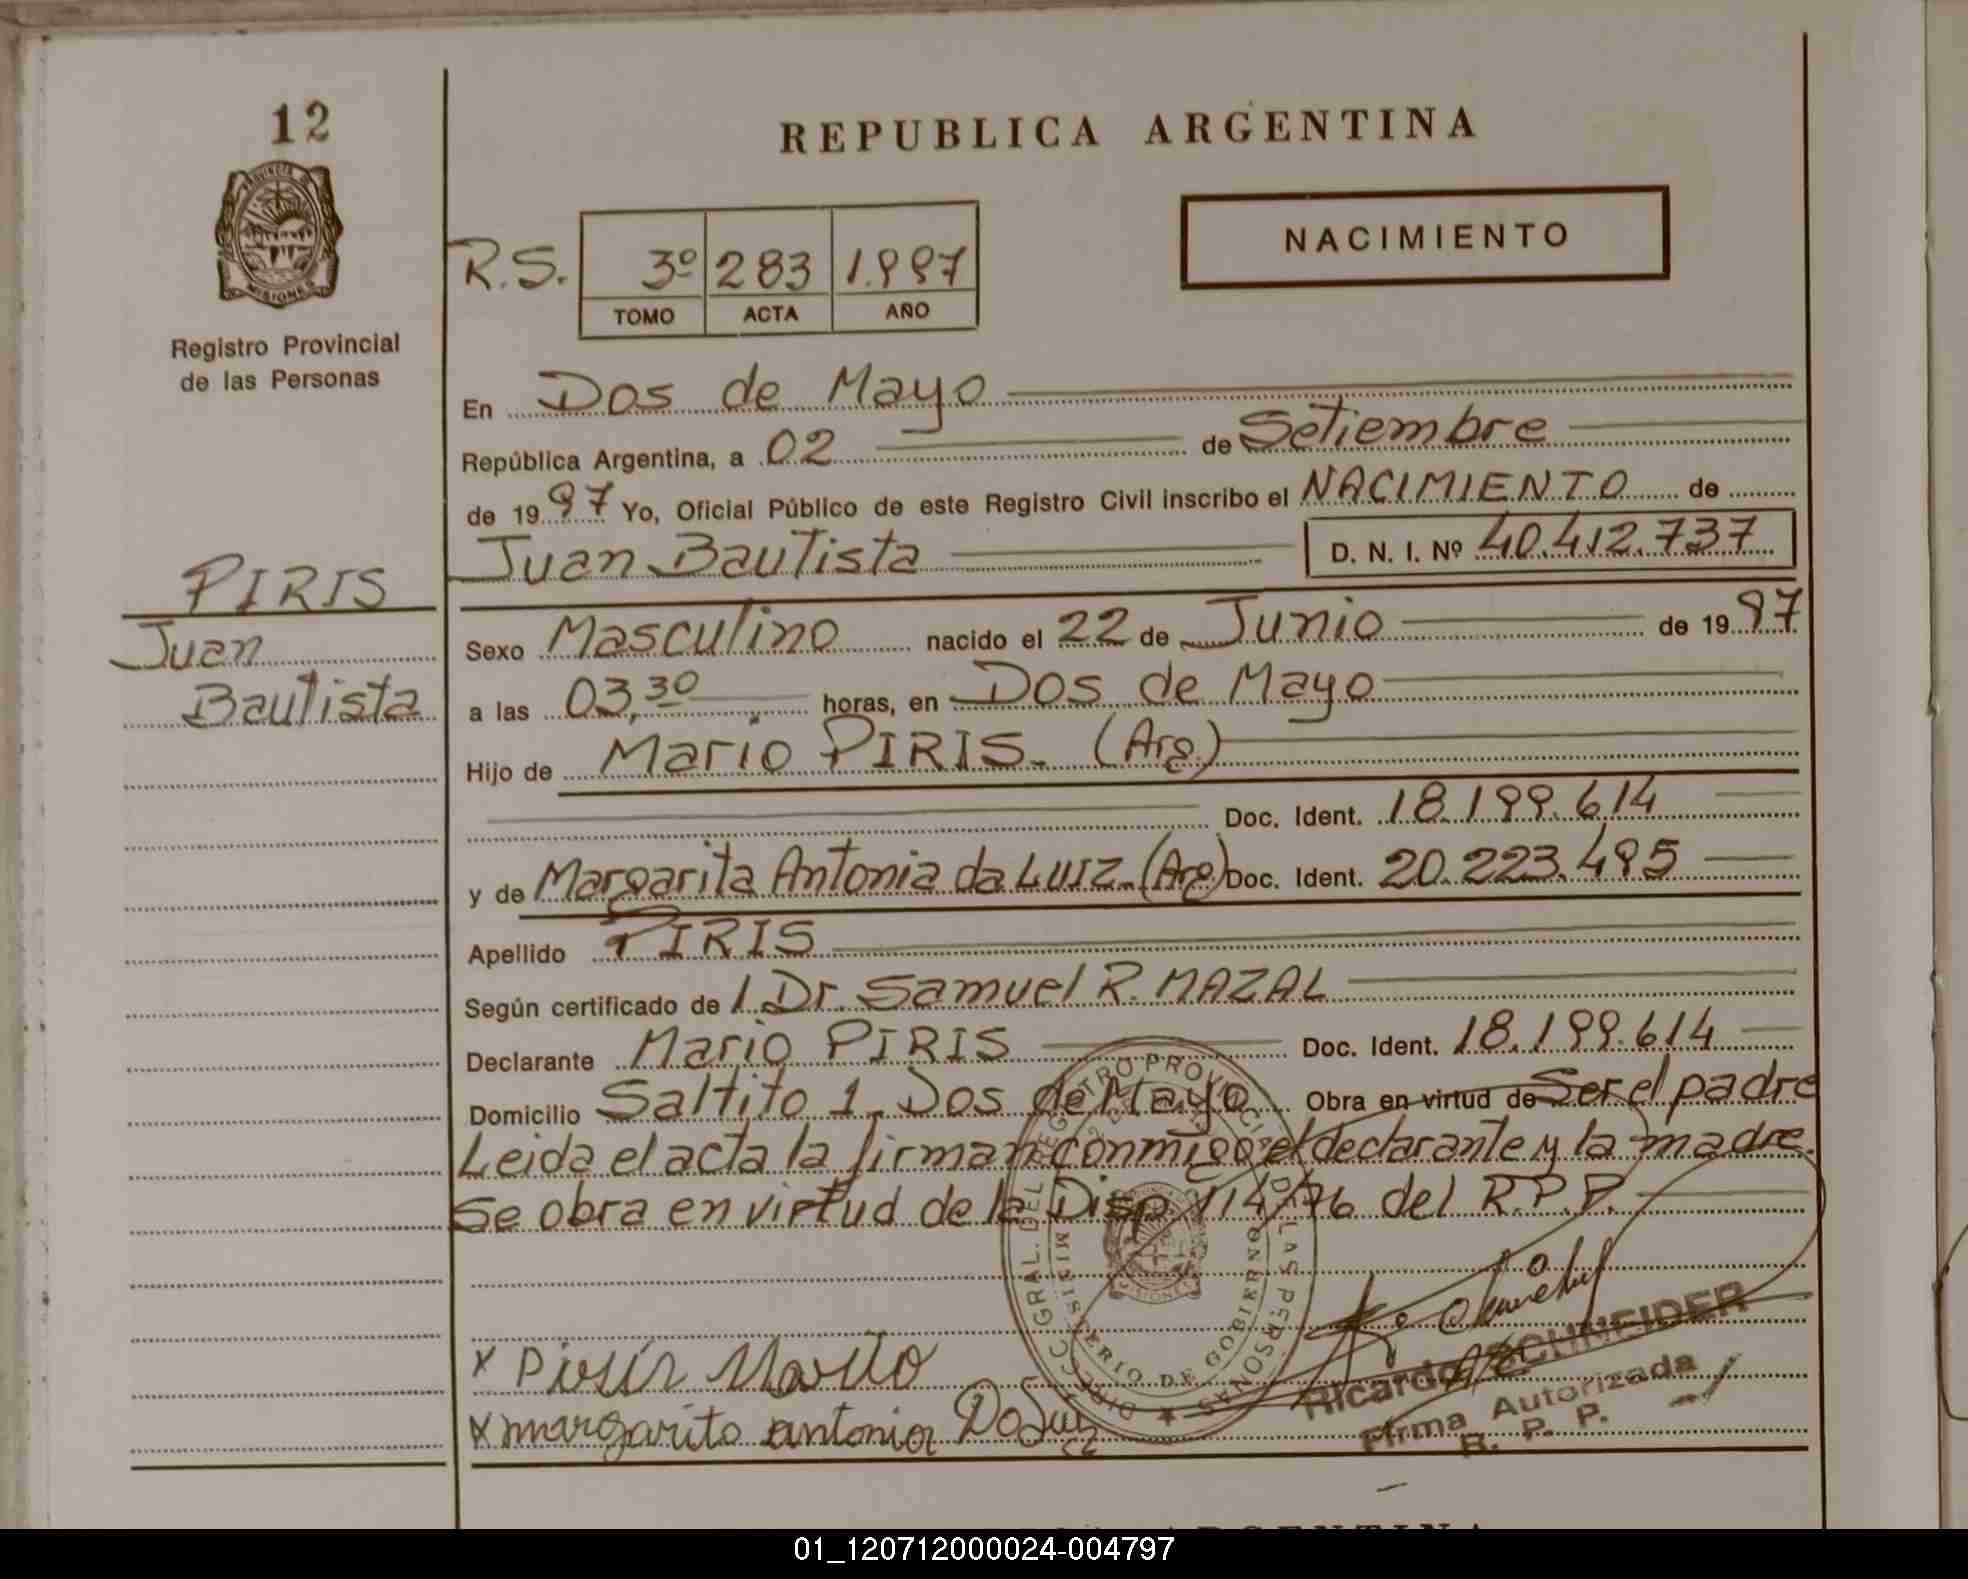 12
REPUBLICA ARGENTINA
PROVINCIA DE
MISIONES
NACIMIENTO
R.S. 3º 283 1.997
TOMO ACTA AÑO
Registro Provincial
de las Personas
En Dos de Mayo
República Argentina, a 02 de Setiembre
de 1997 Yo, Oficial Público de este Registro Civil inscribo el NACIMIENTO de
Juan Bautista D. N. I. Nº 40.412.737
PIRIS
Juan
Bautista
Sexo Masculino nacido el 22 de Junio de 1997
a las 03,30 horas, en Dos de Mayo
Hijo de Mario PIRIS. (Arg.)
Doc. Ident. 18.199.614
y de Margarita Antonia da LUIZ. (Arg.) Doc. Ident. 20.223.495
Apellido PIRIS
Según certificado de l Dr. Samuel R. MAZAL
Declarante Mario PIRIS Doc. Ident. 18.199.614
Domicilio Saltito 1. Dos de Mayo Obra en virtud de Ser el padre
Leida el acta la firman conmigo el declarante y la madre.
Se obra en virtud de la Disp 114/76 del R.P.P.
DIRECC. GRAL. DEL REGISTRO PROVINCIAL DE LAS PERSONAS
MINISTERIO DE GOBIERNO
MISIONES
x Piris Mario
x margarita antonia Da Luiz
Ricardo SCHNEIDER
Firma Autorizada
R. P. P.
ARGENTINA
01_120712000024-004797